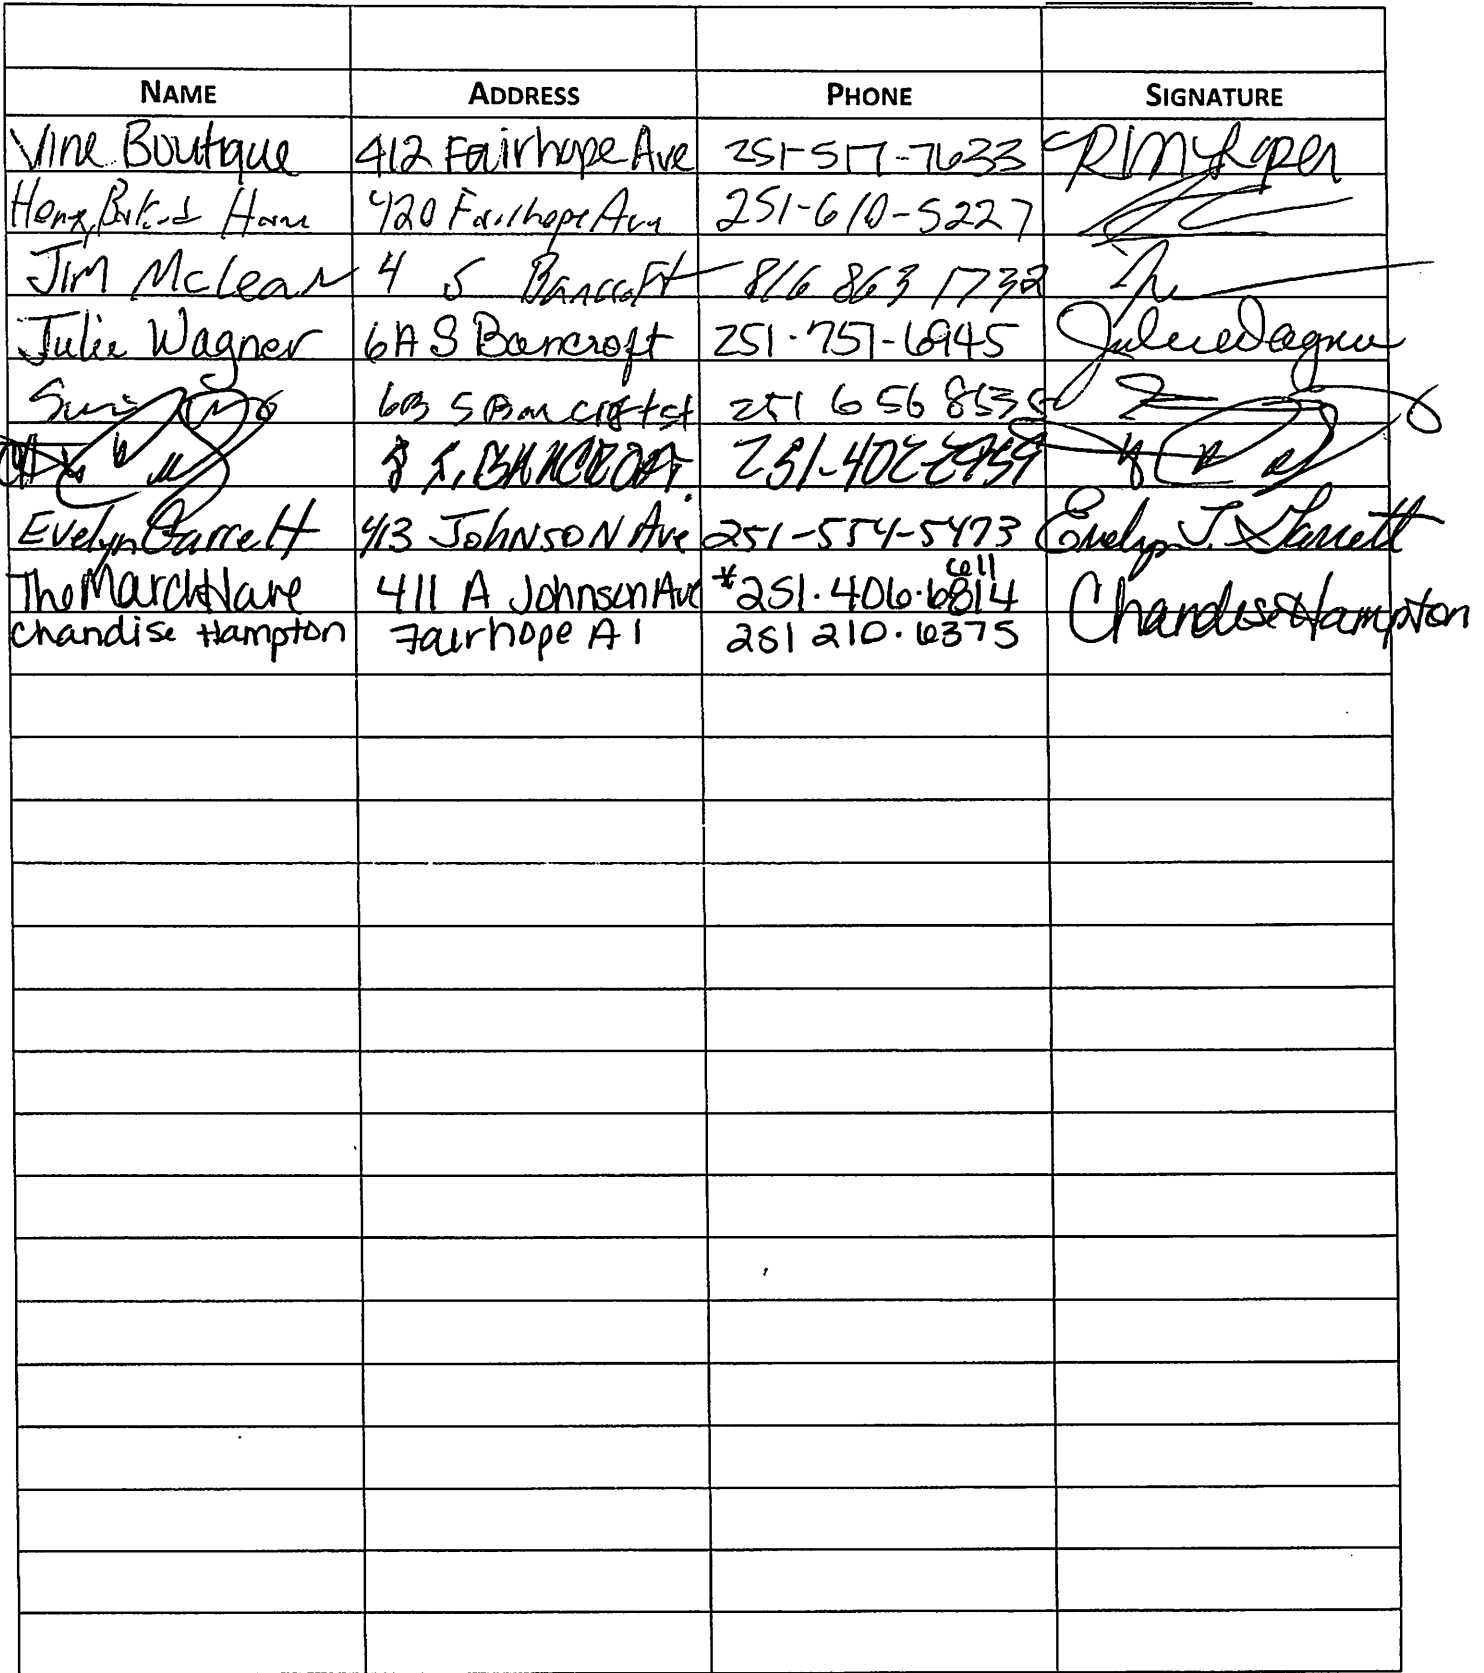 NAME ADDRESS PHONE SIGNATURE
Vine Boutique 412 Fairhope Ave 251-517-7633
Honey Baked Ham 420 Fairhope Ave 251-610-5227
Jim McLean 4 S Bancroft 816 863 1732
Julie Wagner 6A S Bancroft 251-757-6945 Julie Wagner
6B S Bancroft st 251 656
S. BANCROFT
Evelyn Garrett 413 Johnson Ave 251-554-5473 Evelyn J. Garrett
cell
The March Hare 411 A Johnson Ave *251.406.6814 Chandise Hampton
Chandise Hampton Fairhope Al 251 210.6375